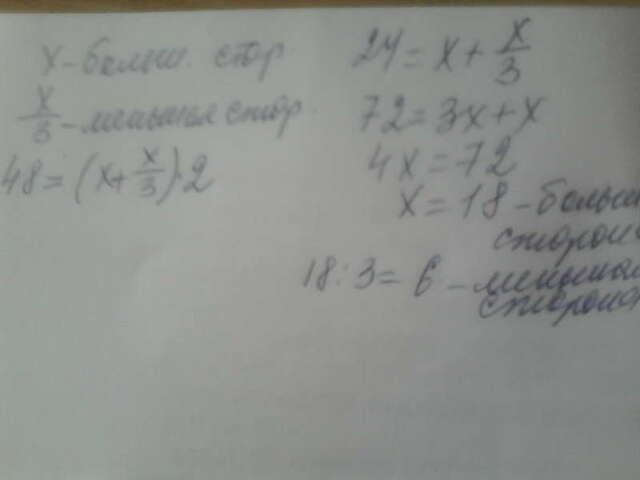 x - больш. стор.
x/3 - меньшая стор.
48 = (x + x/3) · 2
24 = x + x/3
72 = 3x + x
4x = 72
x = 18 - больш
сторона
18 : 3 = 6 - меньшая
сторона